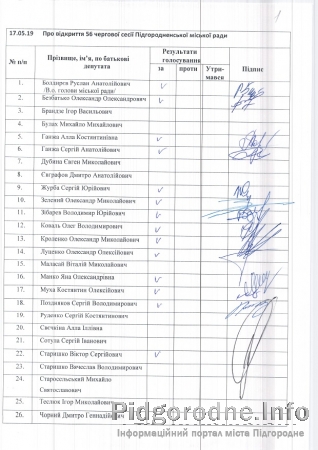 1
17.05.19 Про відкриття 56 чергової сесії Підгородненської міської ради
№ п/п Прізвище, ім'я, по батькові депутата Результати голосування Підпис
за проти Утри-мався
1. Болдирєв Руслан Анатолійович /В.о. голови міської ради/
2. Безбатько Олександр Олександрович
3. Брандіс Ігор Васильович
4. Булах Михайло Михайлович
5. Ганжа Алла Костянтинівна
6. Ганжа Сергій Анатолійович
7. Дубина Євген Миколайович
8. Євграфов Дмитро Анатолійович
9. Журба Сергій Юрійович
10. Зелений Олександр Миколайович
11. Зібарев Володимир Юрійович
12. Коваль Олег Володимирович
13. Кроленко Олександр Миколайович
14. Луценко Олександр Олексійович
15. Маласай Віталій Миколайович
16. Манко Яна Олександрівна
17. Муха Костянтин Олексійович
18. Поздняков Сергій Володимирович
19. Руденко Сергій Костянтинович
20. Свєчкіна Алла Іллівна
21. Сотула Сергій Іванович
22. Старишко Віктор Сергійович
23. Старишко Вячеслав Володимирович
24. Старосєльський Михайло Святославович
25. Теслюк Ігор Миколайович
26. Чорний Дмитро Геннадійович
Pidgorodne.Info
Інформаційний портал міста Підгородне